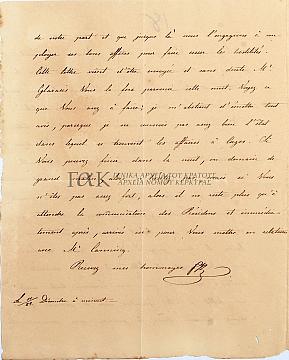 de votre part et que jusque là nous l'engageons à em-
ployer ses bons offices pour faire cesser les hostilités.
Cette lettre vient d'être envoyée et sans doute Mr
Glarakis Vous la fera parvenir cette nuit. Voyez ce
que Vous avez à faire; je m'abstient d'émettre tout
avis, parceque je ne connais pas assez bien l'état
dans lequel se trouvent les affaires à Argos. Si
Vous pouvez faire, dans la nuit, ou demain de
grand matin, mais si Vous
n'êtes pas assez fort, alors il ne reste plus qu'à
attendre la communication des Résidens et immédia-
tement après, arrivés ici pour Vous mettre en relation
avec Mr Canning.
Recevez mes hommages
ΓΑΚ
ΓΕΝΙΚΑ ΑΡΧΕΙΑ ΤΟΥ ΚΡΑΤΟΥΣ
ΑΡΧΕΙΑ ΝΟΜΟΥ ΚΕΡΚΥΡΑΣ
Décembre à minuit